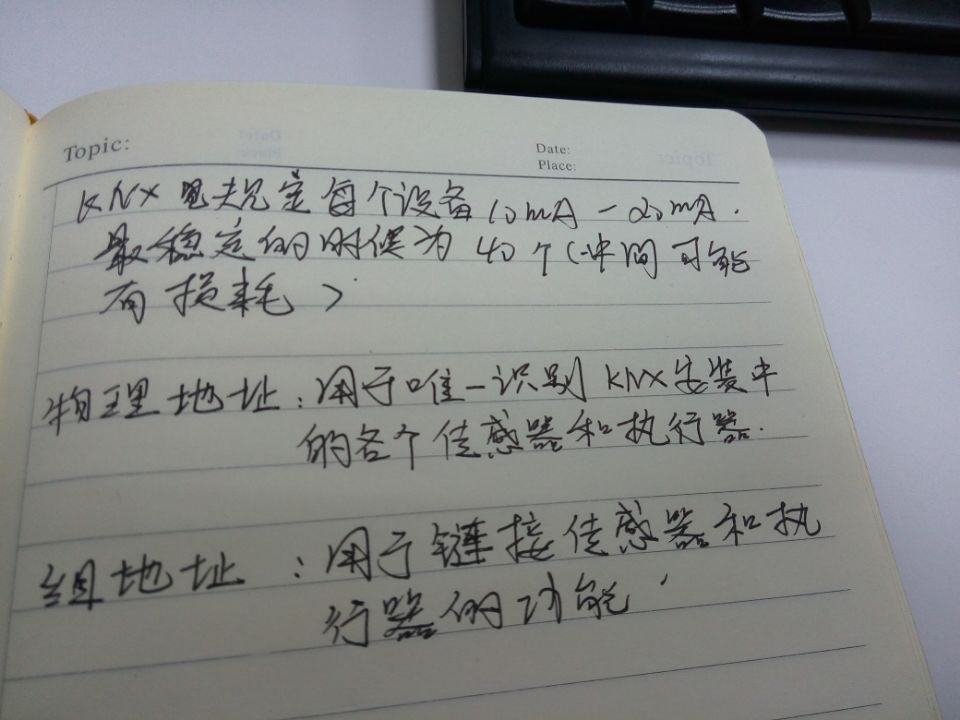 Topic:
Date:
Place:
KNX 规定每个设备 10mA-20mA.
最稳定的时候为 40个(中间可能
有损耗)
物理地址:用于唯一识别 KNX安装中
的各个传感器和执行器.
组地址:用于链接传感器和执
行器的功能